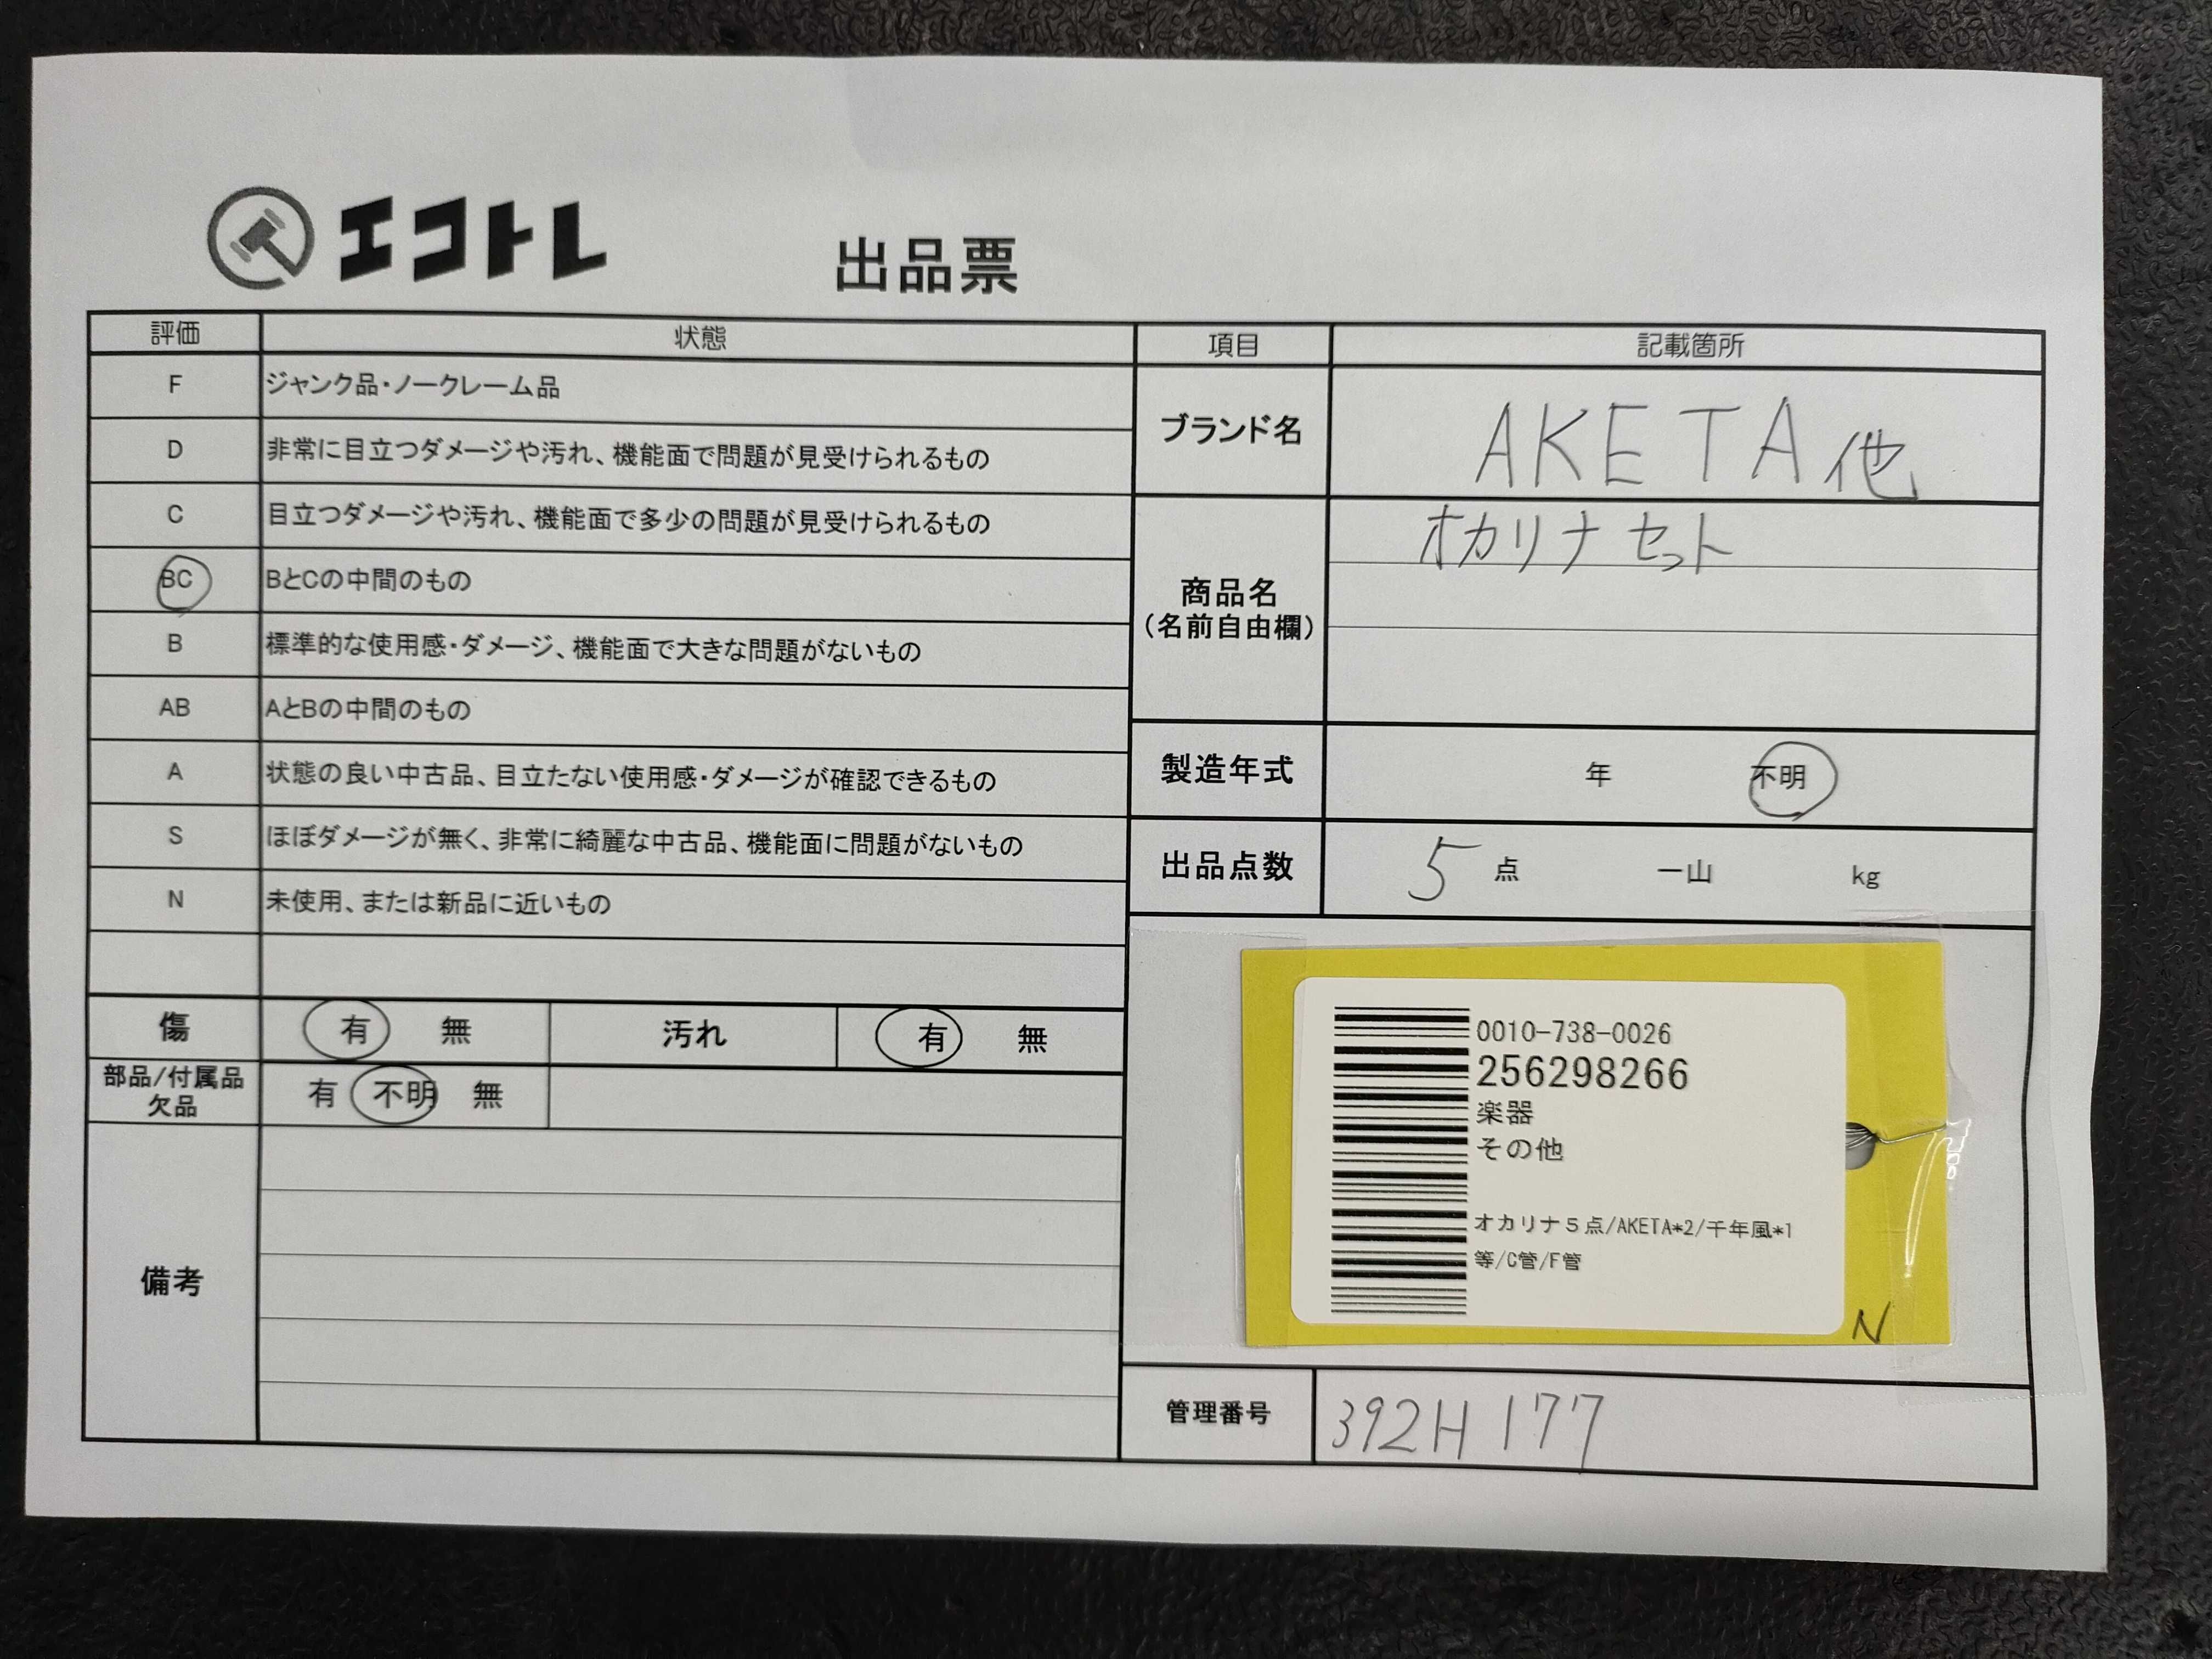 エコトレ
出品票
評価 状態
F ジャンク品・ノークレーム品
D 非常に目立つダメージや汚れ、機能面で問題が見受けられるもの
C 目立つダメージや汚れ、機能面で多少の問題が見受けられるもの
BC BとCの中間のもの
B 標準的な使用感・ダメージ、機能面で大きな問題がないもの
AB AとBの中間のもの
A 状態の良い中古品、目立たない使用感・ダメージが確認できるもの
S ほぼダメージが無く、非常に綺麗な中古品、機能面に問題がないもの
N 未使用、または新品に近いもの
傷 有 無 汚れ 有 無
部品/付属品
欠品 有 不明 無
備考
項目 記載箇所
ブランド名 AKETA他
商品名
(名前自由欄)
オカリナセット
製造年式 年 不明
出品点数 5 点 一山 kg
0010-738-0026
256298266
楽器
その他
オカリナ5点/AKETA*2/千年風*1
等/C管/F管
N
管理番号 392H177